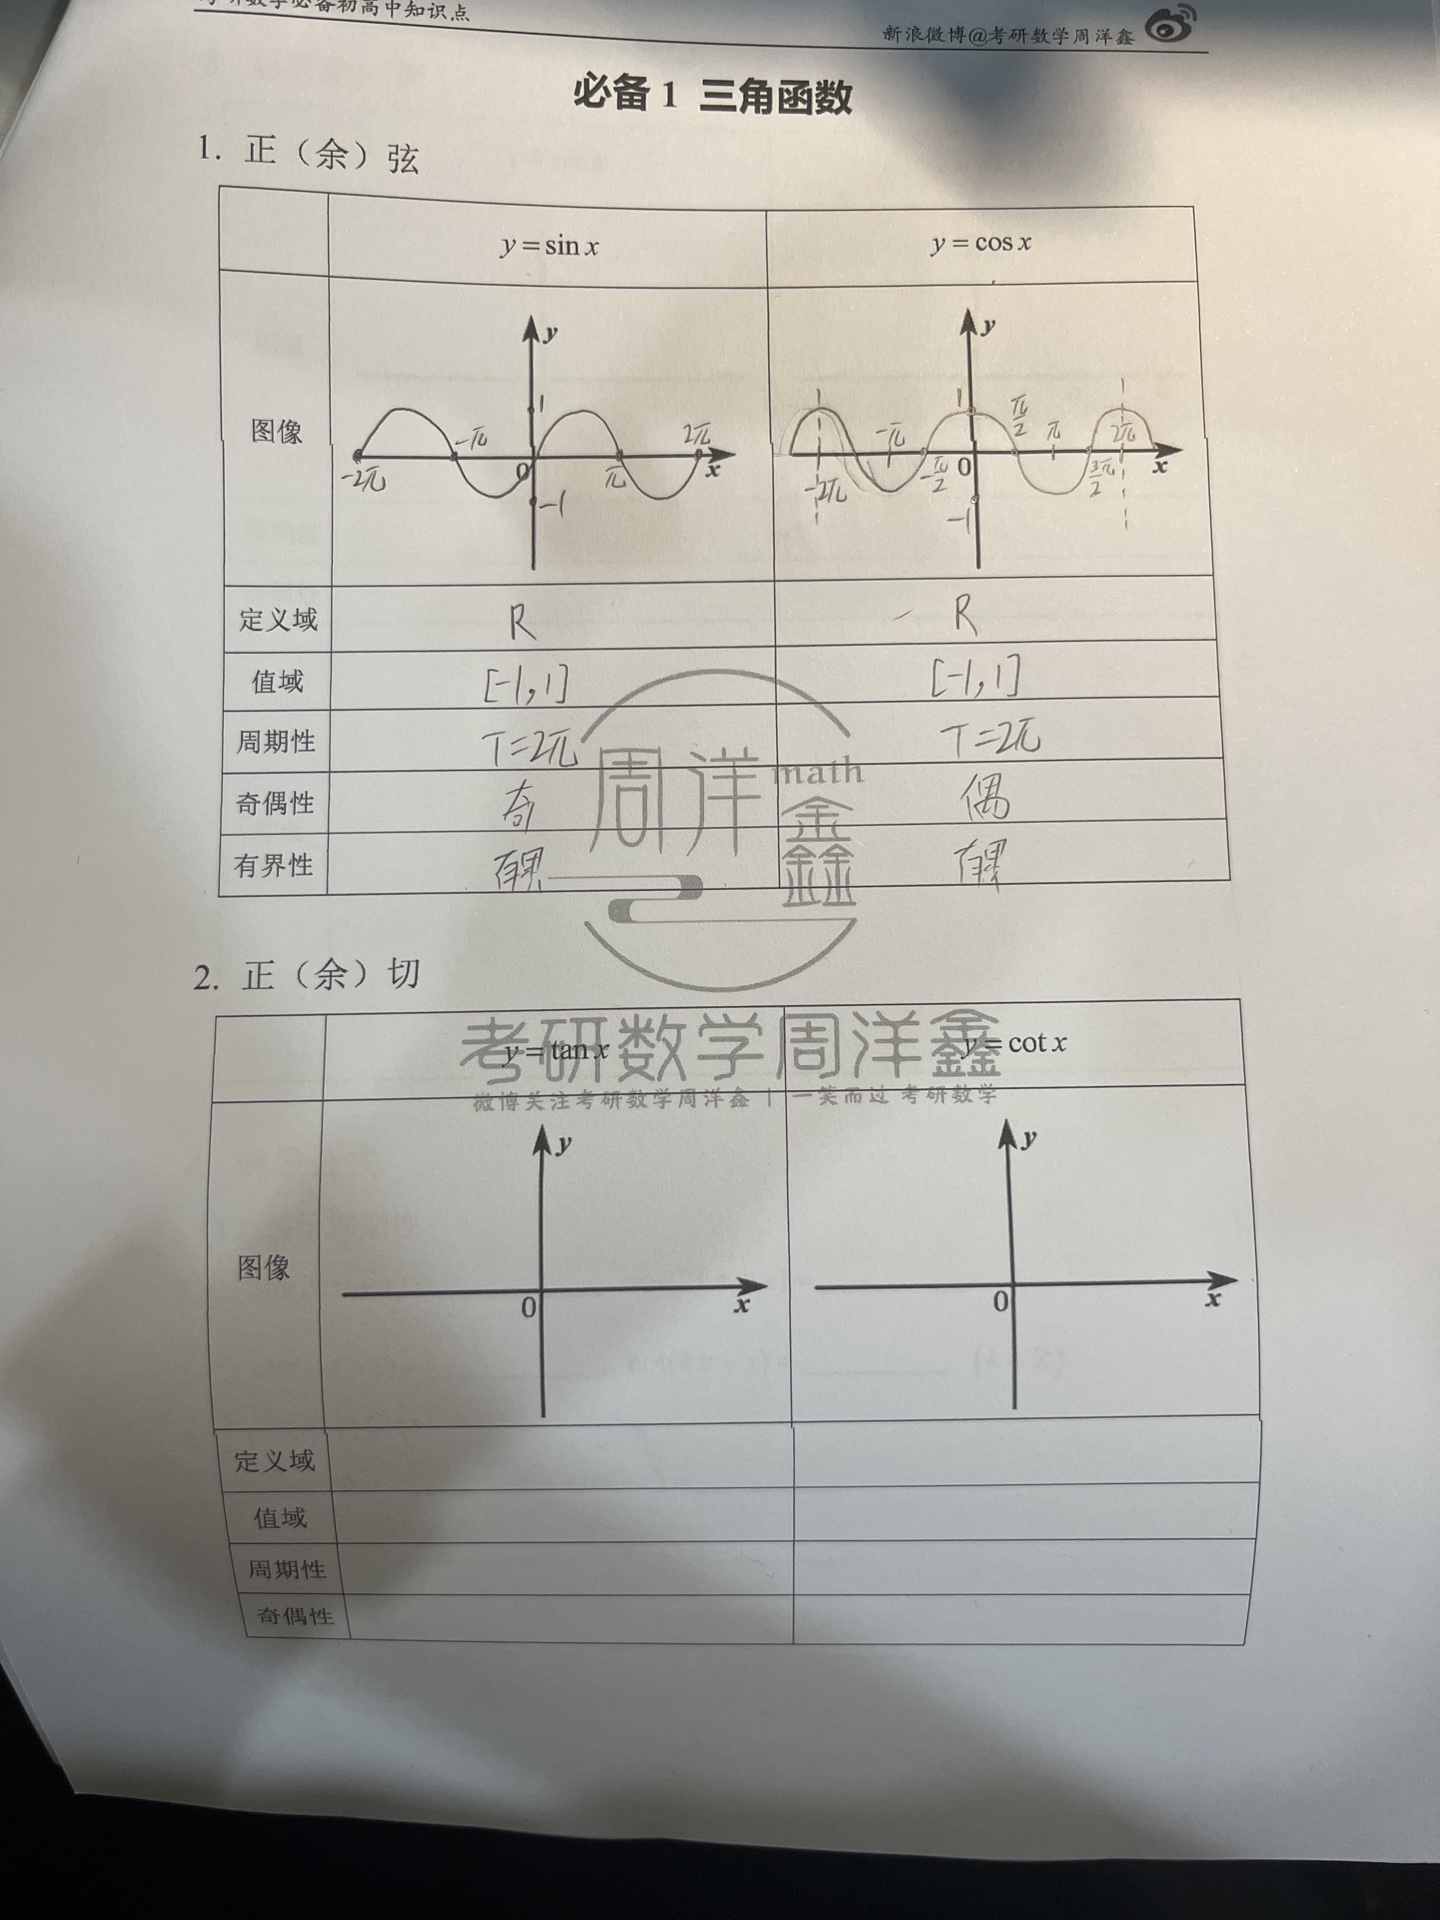 考研数学必备初高中知识点
新浪微博@考研数学周洋鑫
必备1 三角函数
1. 正（余）弦
y = sin x
y = cos x
图像
y
1
-2π
-π
0
π
2π
x
-1
y
1
-2π
-π
-π/2
0
π/2
π
3π/2
2π
x
-1
定义域 R R
值域 [-1,1] [-1,1]
周期性 T=2π T=2π
奇偶性 奇 偶
有界性 有界 有界
周洋math鑫
2. 正（余）切
考研数学周洋鑫
y = tan x
y = cot x
微博关注考研数学周洋鑫 | 一笑而过 考研数学
图像
y
0
x
y
0
x
定义域
值域
周期性
奇偶性